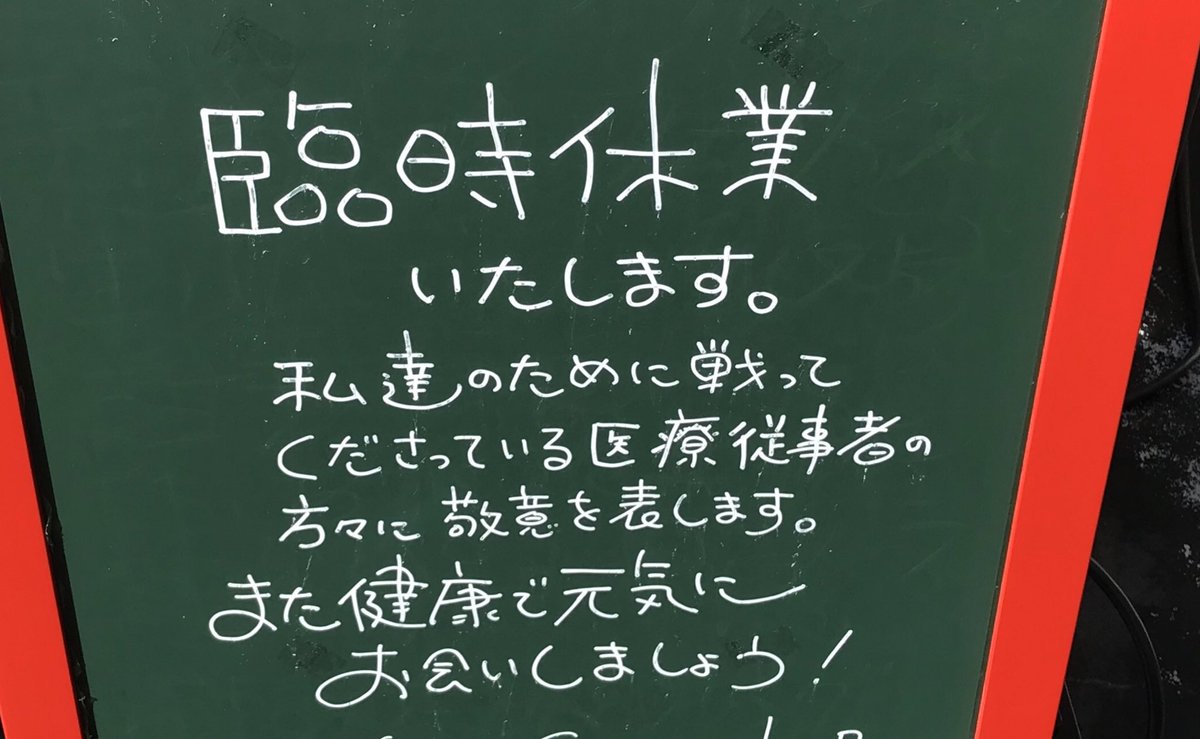 臨時休業
いたします。
私達のために戦って
くださっている医療従事者の
方々に敬意を表します。
また健康で元気に
お会いしましょう!